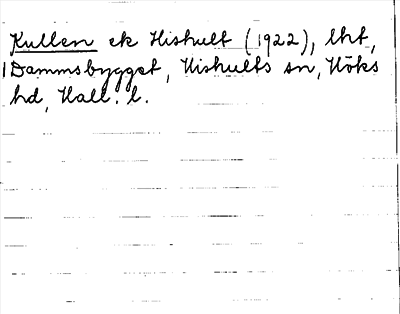 Kullen ek Hishult (1922), lht,
1 Dammsbygget, Hishults sn, Höks
hd, Hall. l.